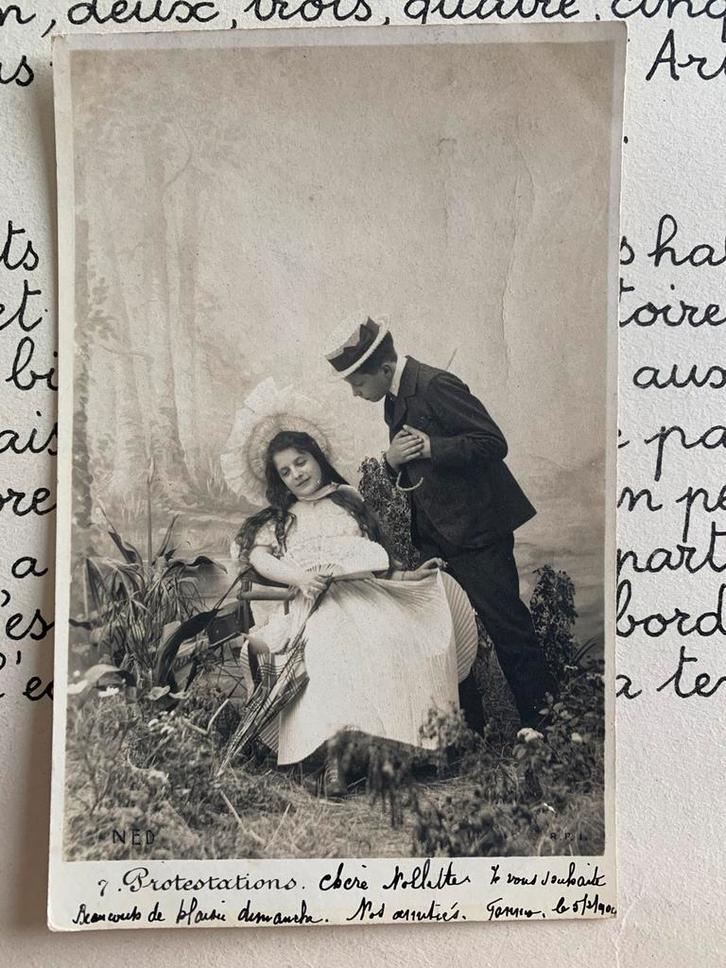 n, deux, trois, quatre, cinq
us
Ar
ts
s ha
et
toire
bi
aux
ais
pa
ore
n pe
a
part
'es
bord
l'e
a te
NED
R.P.I.
7. Protestations. chère Je vous souhaite
Beaucoup de plaisir dimanche. Nos amitiés. le 5/2/1904